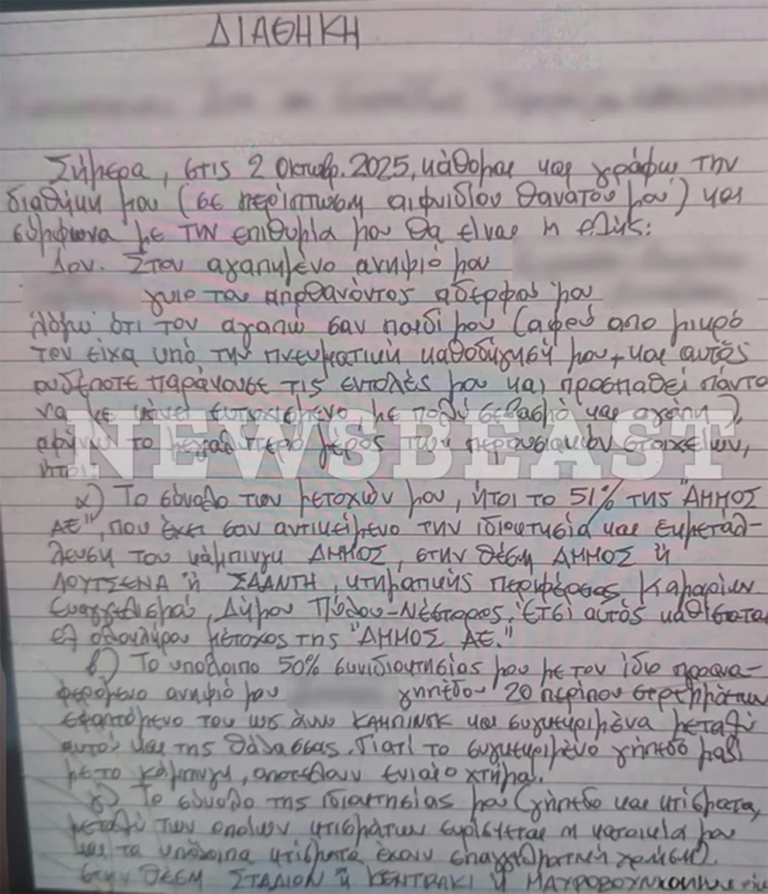 ΔΙΑΘΗΚΗ
Σήμερα, στις 2 Οκτωβρ. 2025, κάθομαι και γράφω την
διαθήκη μου (σε περίπτωση αιφνιδίου θανάτου μου) και
σύμφωνα με την επιθυμία μου θα είναι η εξής:
1ον. Στον αγαπημένο ανηψιό μου
γυιο του αποθανόντος αδερφού μου
λόγω ότι τον αγαπώ σαν παιδί μου (αφού από μικρό
τον είχα υπό την πνευματική καθοδήγησή μου και αυτός
ουδέποτε παράκουσε τις εντολές μου και προσπαθεί πάντα
να με κάνει ευτυχισμένο με πολύ σεβασμό και αγάπη),
αφήνω το μεγαλύτερο μέρος των περιουσιακών στοιχείων,
ήτοι:
NEWSBEAST
α) Το σύνολο των μετοχών μου, ήτοι το 51% της "ΑΜΜΟΣ
ΑΕ", που έχει σαν αντικείμενο την ιδιοκτησία και εκμετάλ-
λευση του κάμπινγκ ΑΜΜΟΣ, στην θέση ΑΜΜΟΣ ή
ΛΟΥΤΣΕΝΑ ή ΣΑΑΝΤΗ, κτηματικής περιφέρειας Καμαρίων
Ευαγγελισμού, Δήμου Πύλου-Νέστορος. Έτσι αυτός καθίσταται
εξ ολοκλήρου μέτοχος της "ΑΜΜΟΣ ΑΕ."
β) Το υπόλοιπο 50% συνιδιοκτησίας μου με τον ίδιο προανα-
φερόμενο ανηψιό μου γηπέδου 20 περίπου στρεμμάτων
εφαπτόμενο του ως άνω ΚΑΜΠΙΝΓΚ και συγκεκριμένα μεταξύ
αυτού και της θάλασσας. Γιατί το συγκεκριμένο γήπεδο μαζί
με το κάμπινγκ, αποτελούν ενιαίο κτήμα.
γ) Το σύνολο της ιδιοκτησίας μου (γήπεδο και κτίσματα,
μεταξύ των οποίων κτισμάτων ευρίσκεται η κατοικία μου
και τα υπόλοιπα κτίσματα έχουν επαγγελματική χρήση).
στην θέση ΣΤΑΔΙΟΝ ή ΚΕΝΤΡΑΚΙ ή